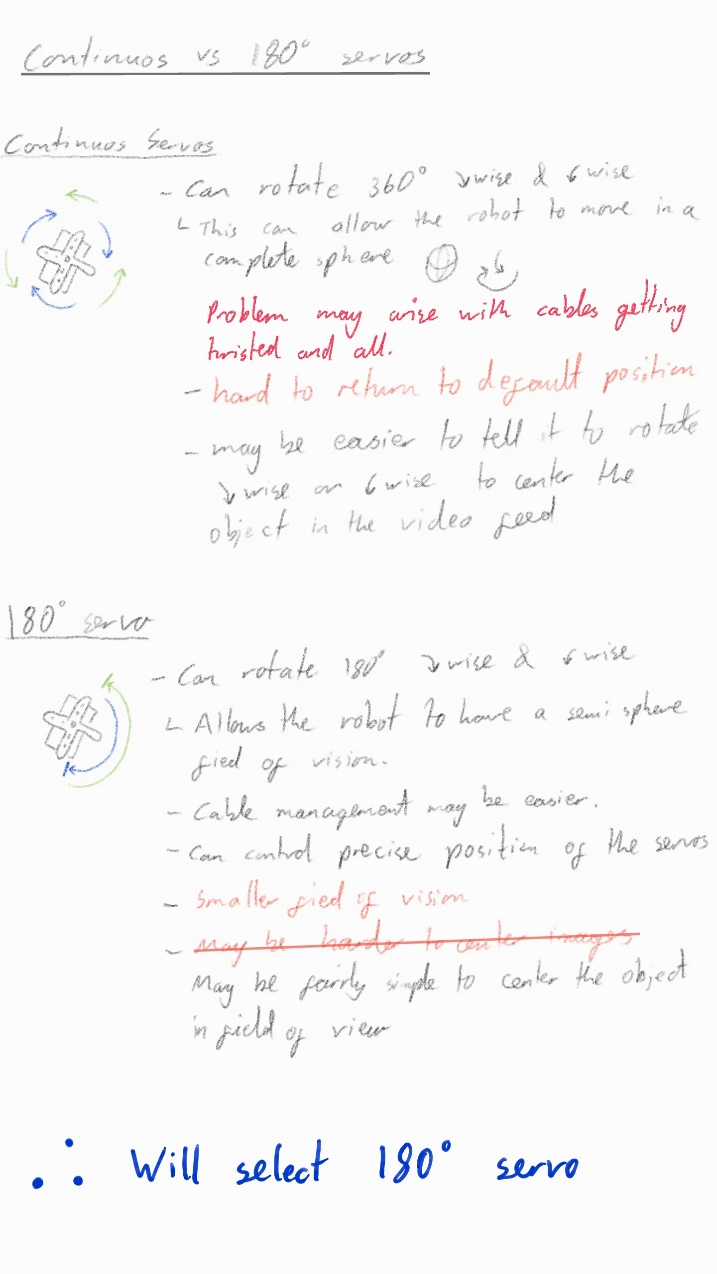 Continuos vs 180° servos
Continuos Servos
- Can rotate 360° ↘wise & ↙wise
↳ This can allow the robot to move in a
complete sphere
Problem may arise with cables getting
twisted and all.
- hard to return to default position
- may be easier to tell it to rotate
↘wise or ↙wise to center the
object in the video feed
180° servo
- Can rotate 180° ↘wise & ↙wise
↳ Allows the robot to have a semi sphere
fied of vision.
- Cable management may be easier.
- Can control precise position of the servos
- Smaller fied of vision
- May be harder to center images
May be fairly simple to center the object
in field of view
∴ Will select 180° servo